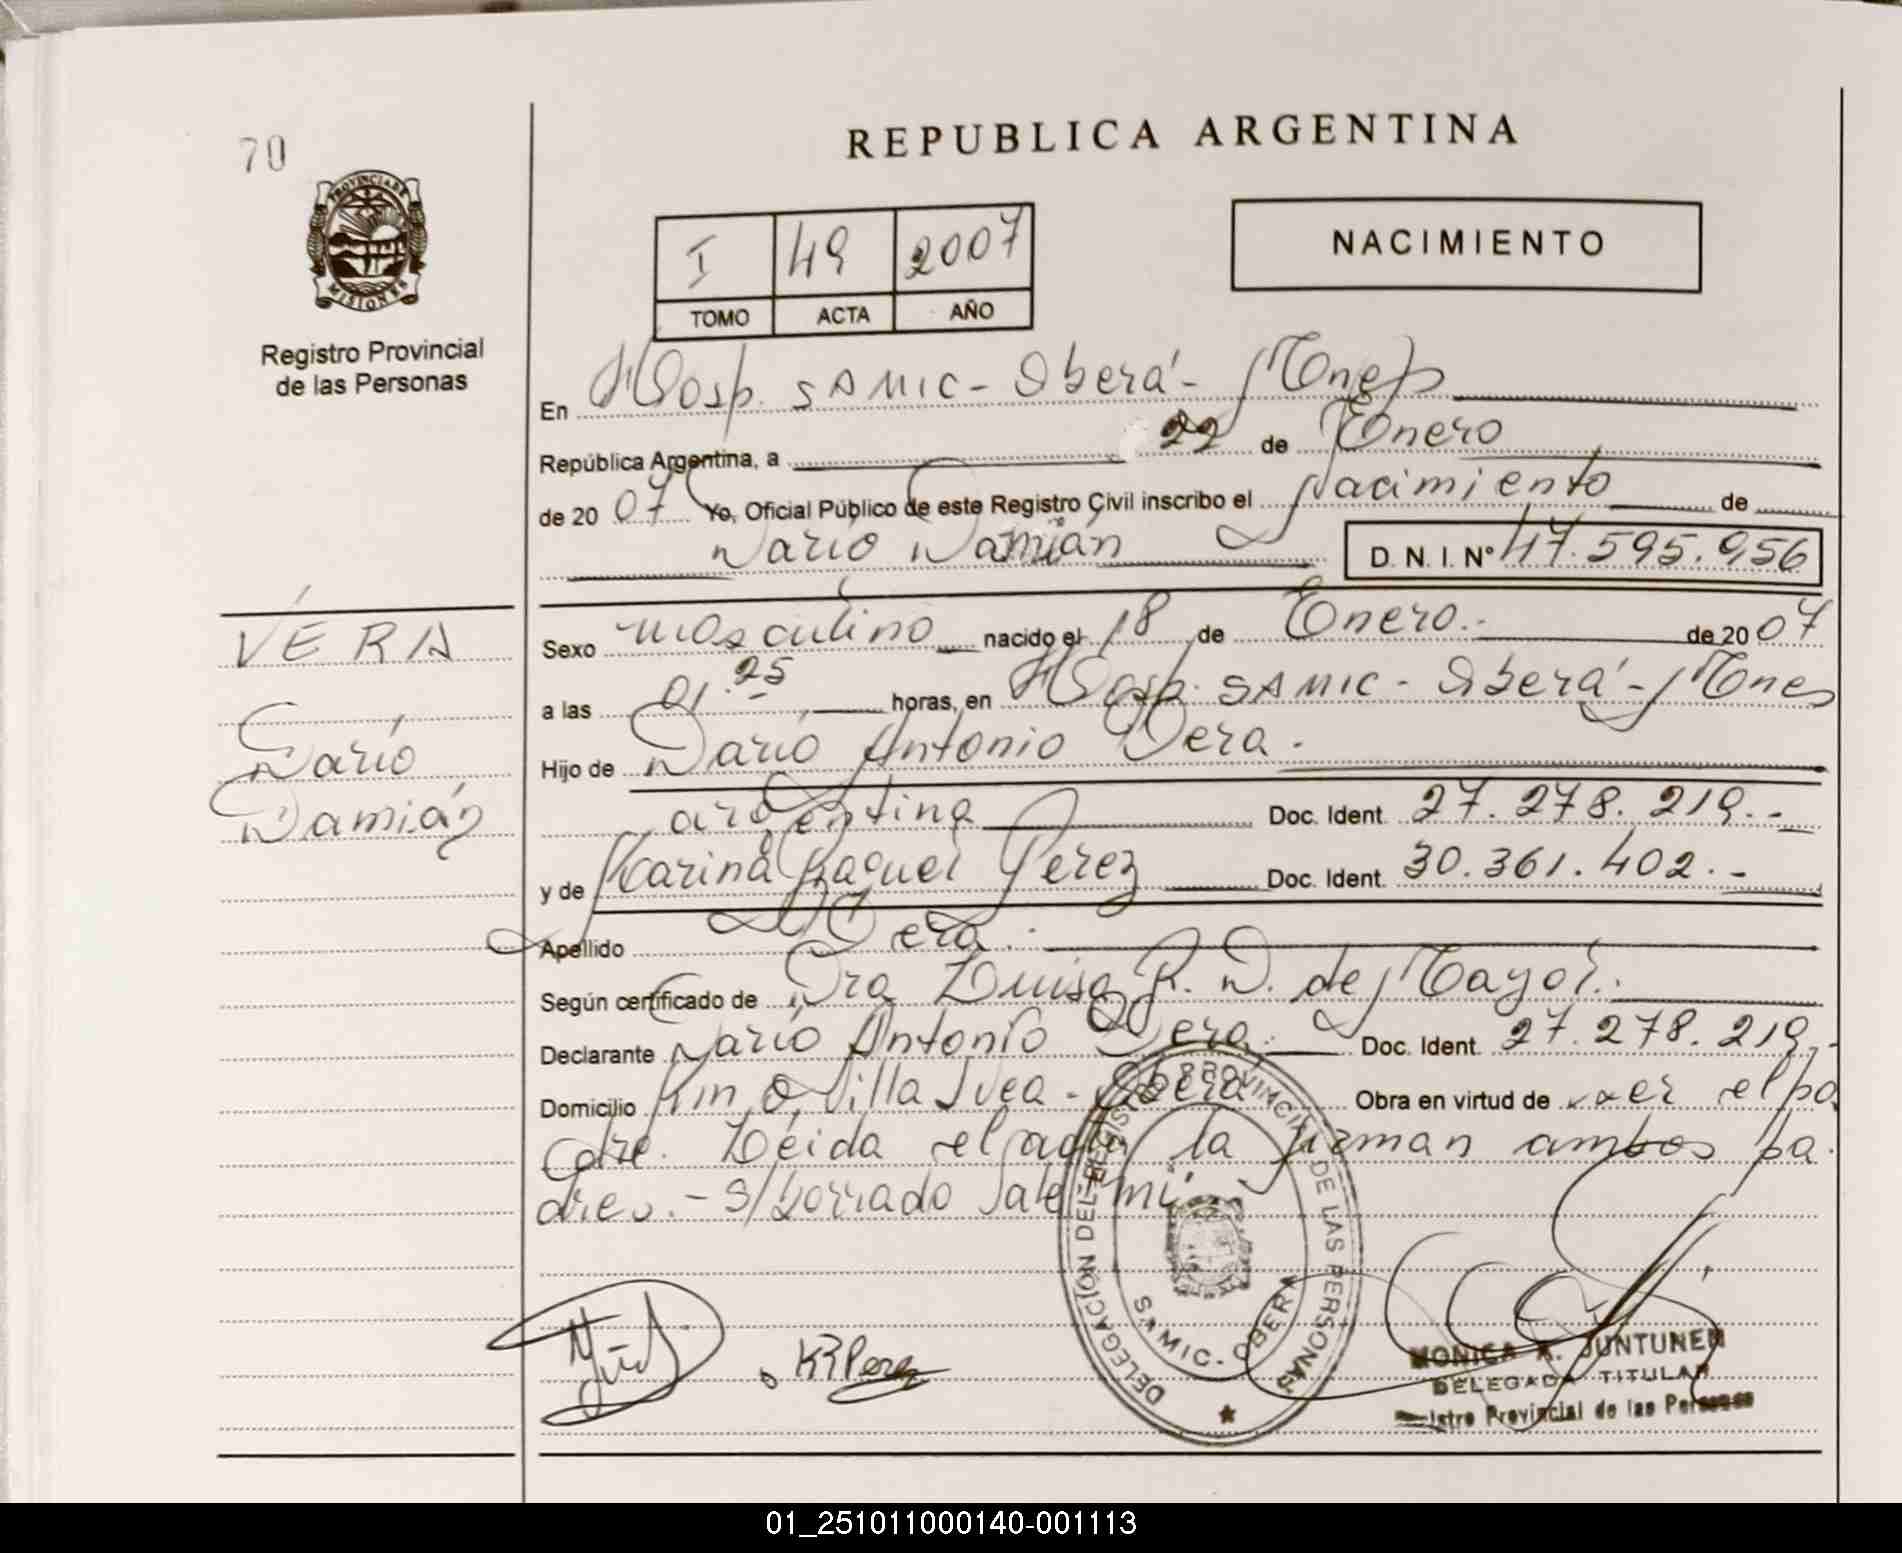 70
REPUBLICA ARGENTINA
PROVINCIA DE
MISIONES
Registro Provincial
de las Personas
I 49 2007
TOMO ACTA AÑO
NACIMIENTO
En Hosp. SAMIC - Oberá - Mnes
República Argentina, a 22 de Enero
de 2007 Yo, Oficial Público de este Registro Civil inscribo el Nacimiento de
Darío Damián D. N. I. Nº 47.595.956
VERA
Darío
Damián
Sexo masculino nacido el 18 de Enero.- de 2007
a las 01.25 horas, en Hosp. SAMIC - Oberá - Mnes
Hijo de Darío Antonio Vera.
argentina Doc. Ident. 27.278.219.-
y de Karina Raquel Perez Doc. Ident. 30.361.402.-
Apellido Vera.
Según certificado de Dra Luisa R. D. de Mayol.
Declarante Darío Antonio Vera. Doc. Ident. 27.278.219.-
Domicilio Km 0, Villa - Oberá Obra en virtud de ser el pa
dre. Leída el acta la firman ambos pa
dres.- S/borrado Vale
DELEGACIÓN DEL REGISTRO PROVINCIAL DE LAS PERSONAS
SAMIC - OBERA
KRPerez
MONICA A. JUNTUNEN
DELEGADA TITULAR
Registro Provincial de las Personas
01_251011000140-001113